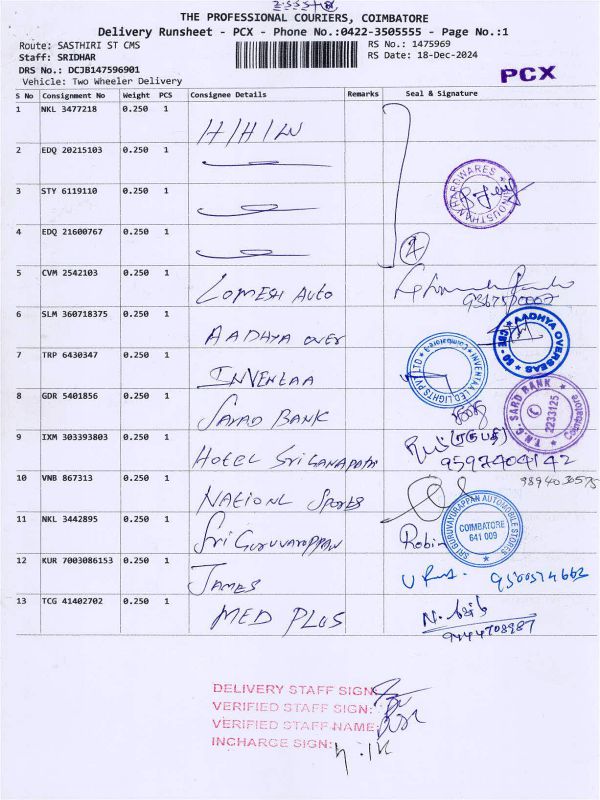 THE PROFESSIONAL COURIERS, COIMBATORE
Delivery Runsheet - PCX - Phone No.:0422-3505555 - Page No.:1
Route: SASTHIRI ST CMS
RS No.: 1475969
Staff: SRIDHAR
RS Date: 18-Dec-2024
DRS No.: DCJB147596901
PCX
Vehicle: Two Wheeler Delivery
S No Consignment No Weight PCS Consignee Details Remarks Seal & Signature
1 NKL 3477218 0.250 1 H/H/W
2 EDQ 20215103 0.250 1
3 STY 6119110 0.250 1
HINDUSTHAN HARDWARES
4 EDQ 21600767 0.250 1 4
5 CVM 2542103 0.250 1 LOMESH AUTO
6 SLM 360718375 0.250 1 AADHYA OVER
AADHYA OVERSEAS CBE - 60
7 TRP 6430347 0.250 1 INVENLAA
INVENTAA LED LIGHTS PVT LTD Coimbatore
8 GDR 5401856 0.250 1 SARAD BANK
T.N.C. SARD BANK 2233125 Coimbatore
9 IXM 303393803 0.250 1 HOTEL Sri GANAPATHI
9597404142
10 VNB 867313 0.250 1 NATIONL Sports
9894030575
11 NKL 3442895 0.250 1 Sri Guruvaroppan Robin
SRI GURUVAYURAPPAN AUTOMOBILE STORES COIMBATORE 641 009
12 KUR 7003086153 0.250 1 JAMES 9500574663
13 TCG 41402702 0.250 1 MED PLUS
9444708987
DELIVERY STAFF SIGN:
VERIFIED STAFF SIGN:
VERIFIED STAFF NAME:
INCHARGE SIGN: